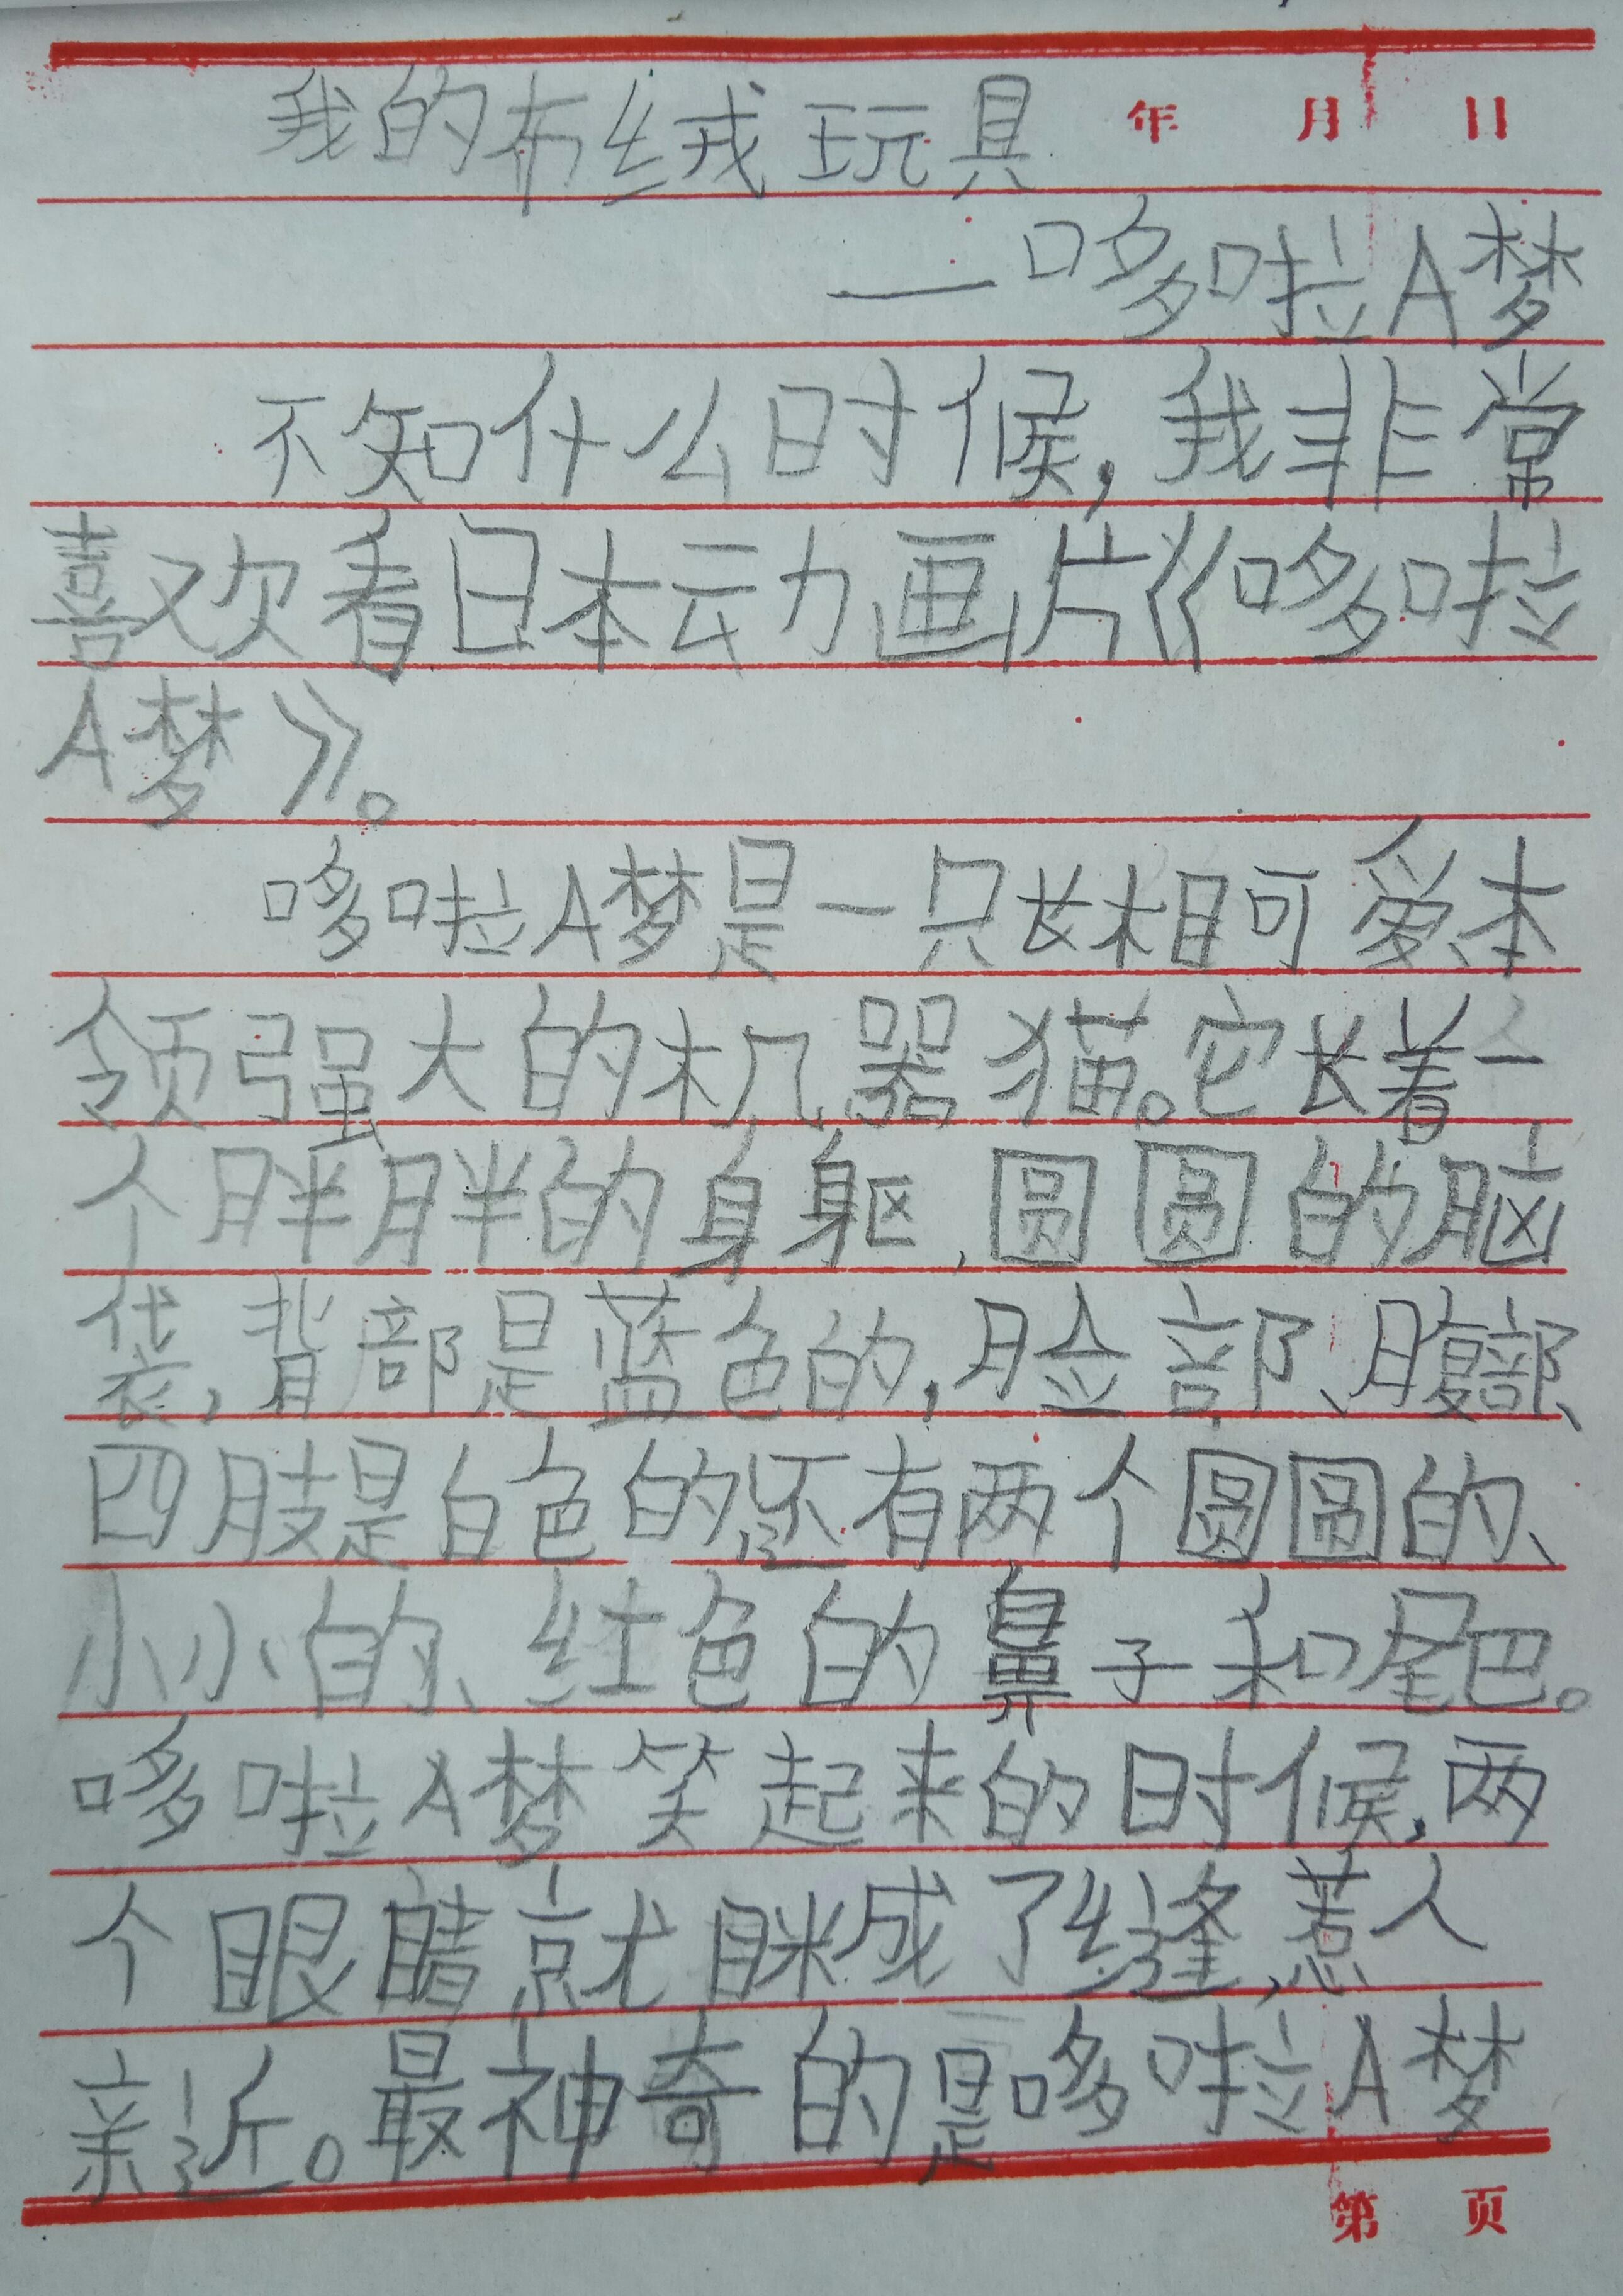 我的布绒玩具 年 月 日
—哆啦A梦
不知什么时候，我非常
喜欢看日本动画片《哆啦
A梦》。
哆啦A梦是一只长相可爱、本
领强大的机器猫。它长着一
个胖胖的身躯，圆圆的脑
袋，背部是蓝色的，脸部、腹部、
四肢是白色的，还有两个圆圆的、
小小的、红色的鼻子和尾巴。
哆啦A梦笑起来的时候，两
个眼睛就眯成了缝，惹人
亲近。最神奇的是哆啦A梦
第 页